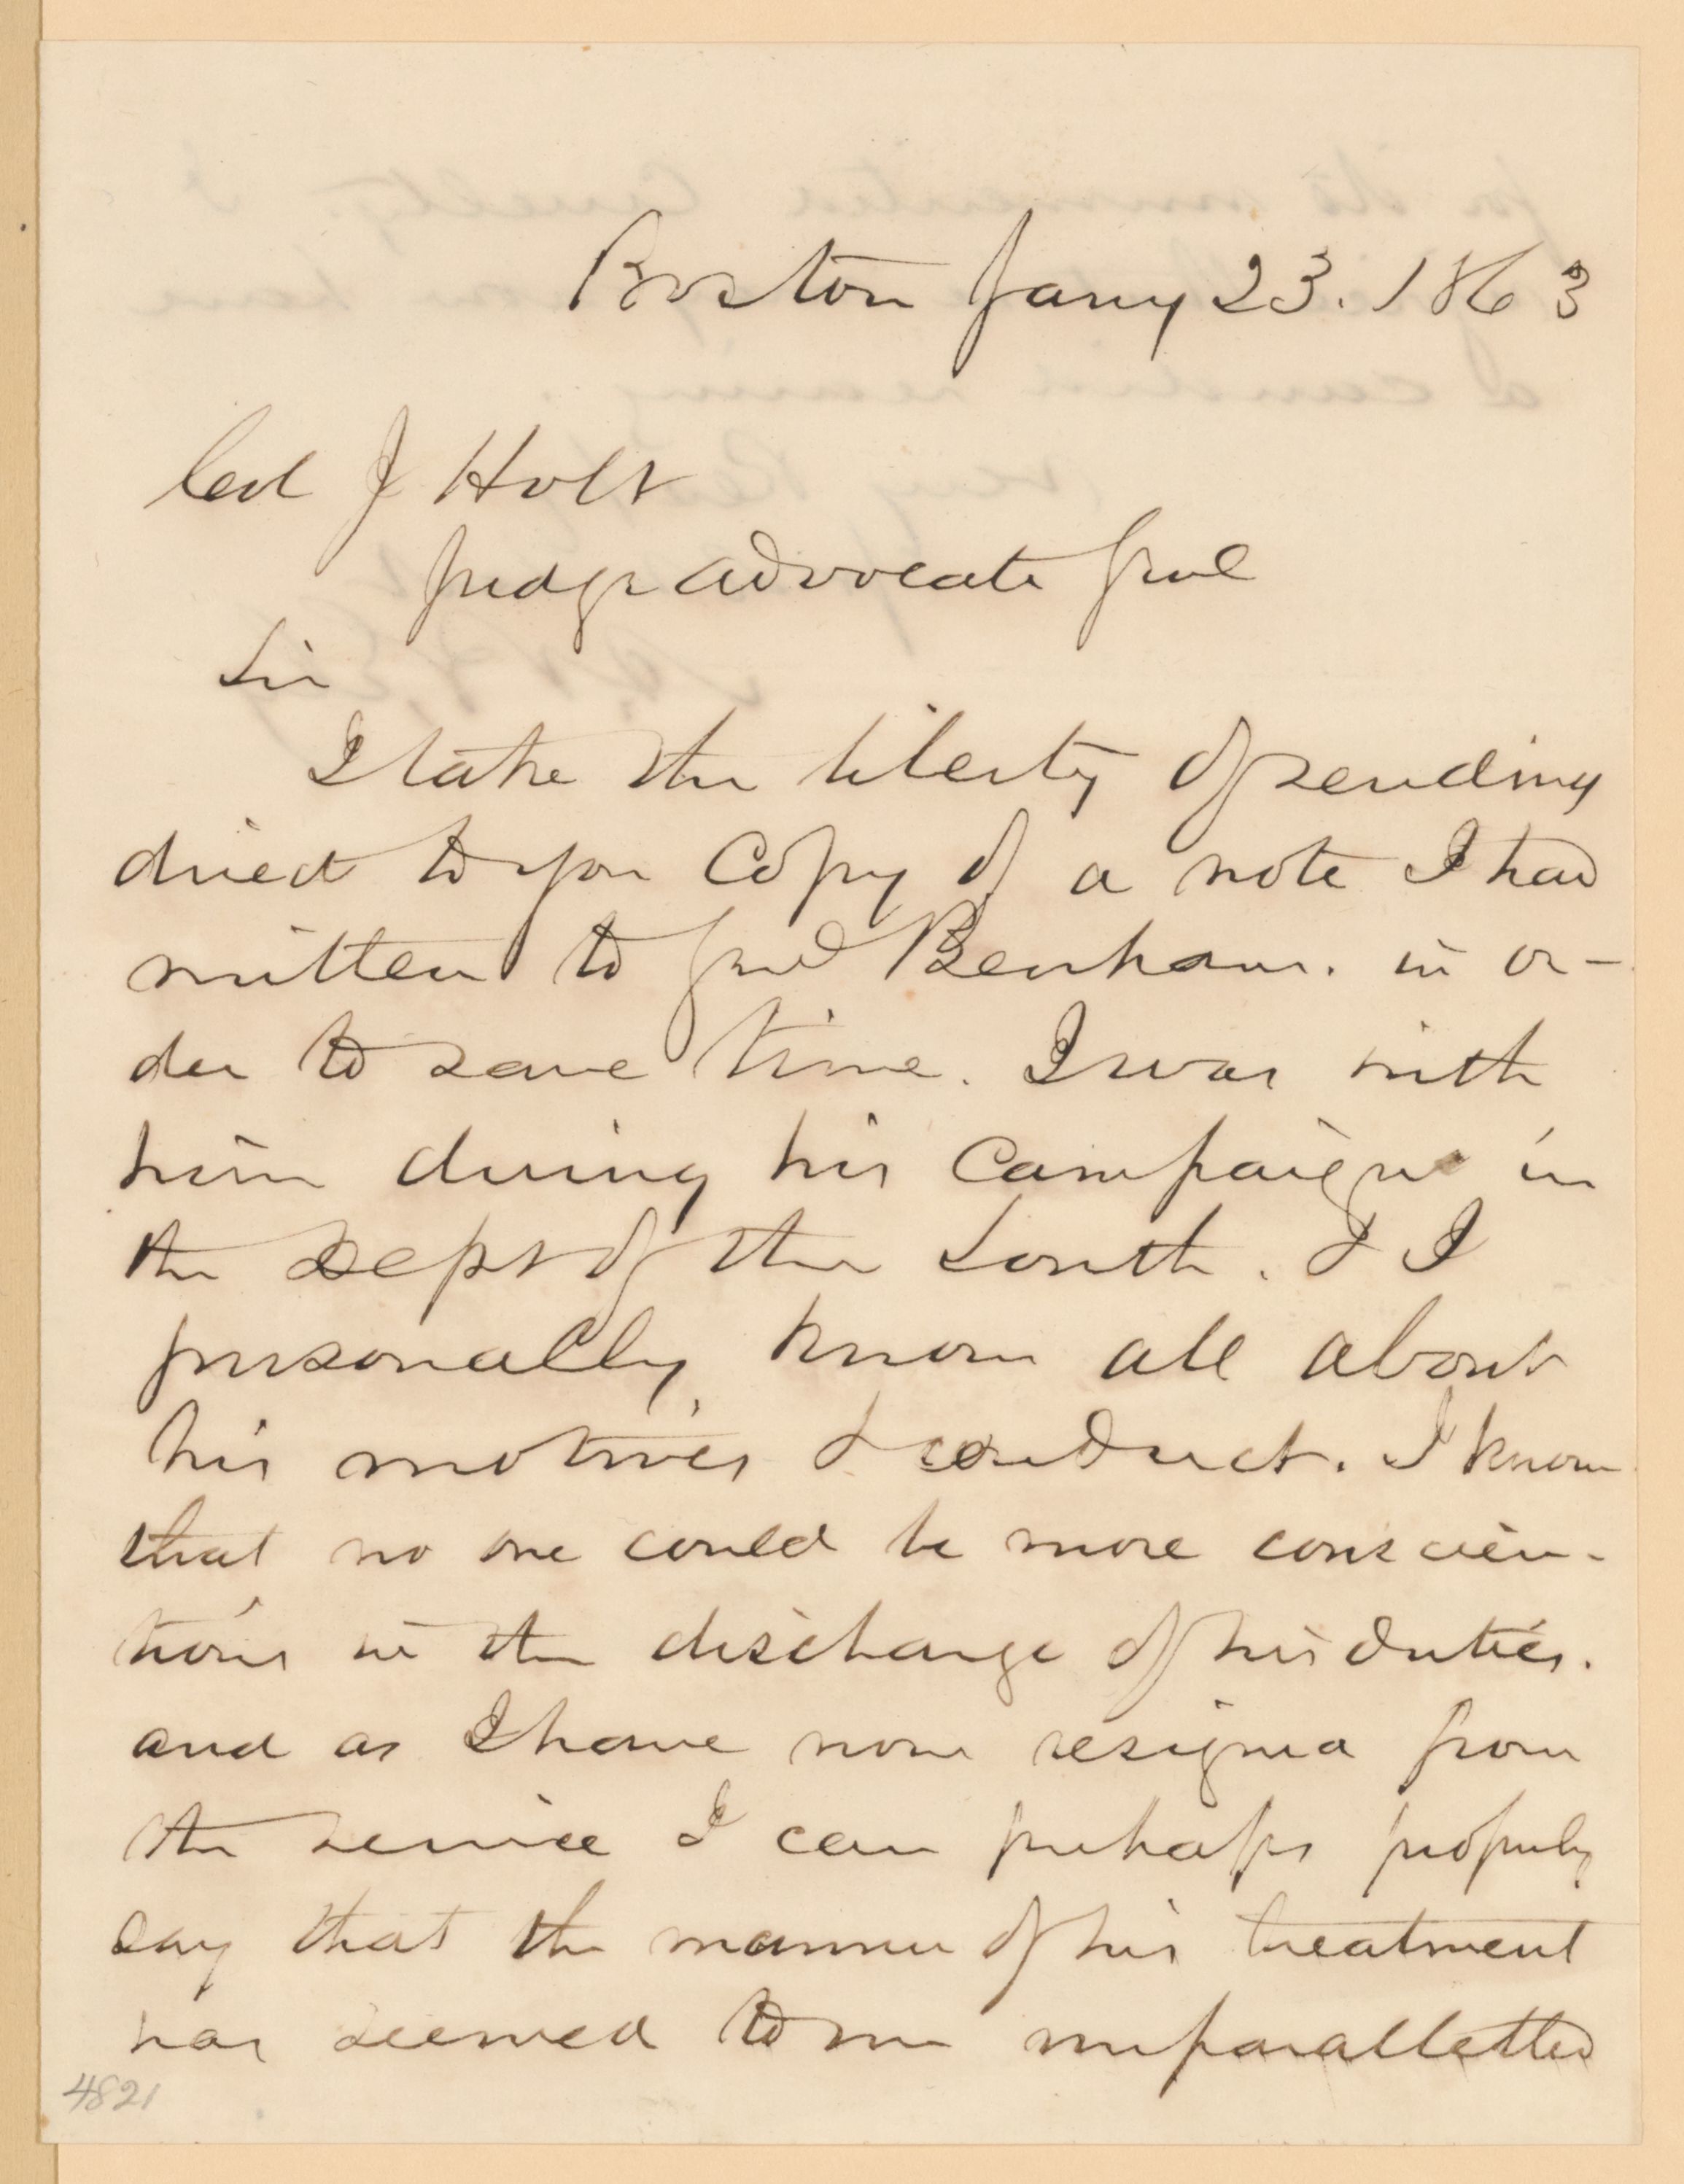 Boston Jany 23. 1863
Col J Holt
Judge Advocate Genl
Sir
I take the liberty of sending
direct to you Copy of a note I had
written to Genl Benham. in or-
der to save time. I was with
him during his Campaign in
the Dept of the South. & I
personally know all about
his motives & conduct. I know
that no one could be more conscien-
tious in the discharge of his duties.
and as I have now resigned from
the service I can perhaps properly
say that the manner of his treatment
has seemed to me unparallelled
4821